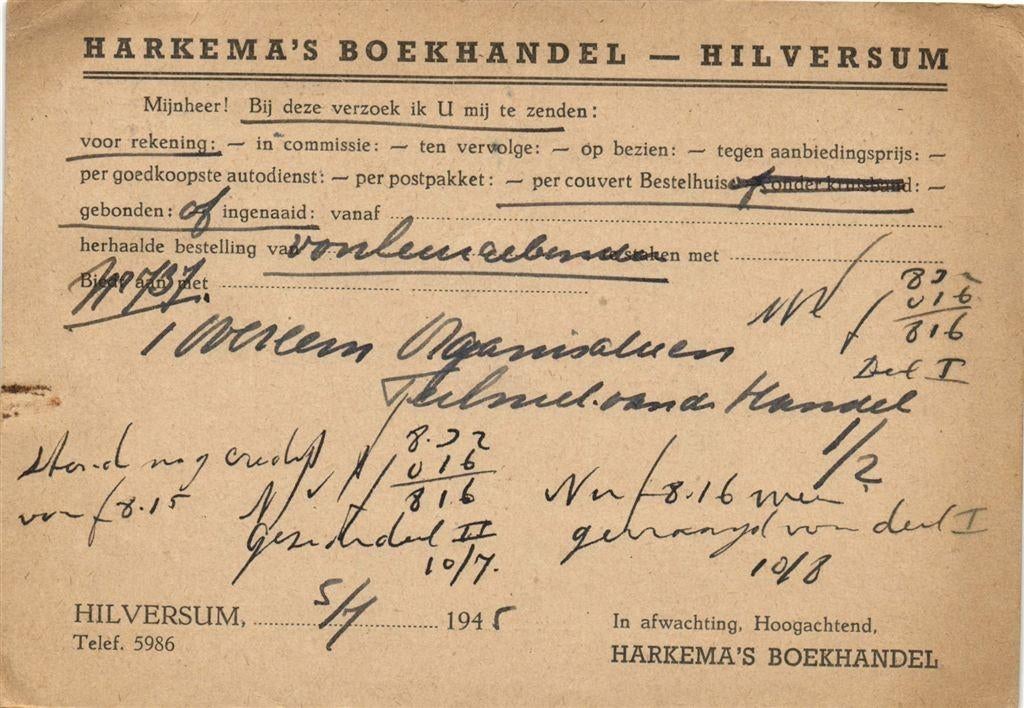 HARKEMA'S BOEKHANDEL — HILVERSUM
Mijnheer! Bij deze verzoek ik U mij te zenden:
voor rekening: — in commissie: — ten vervolge: — op bezien: — tegen aanbiedingsprijs: —
per goedkoopste autodienst: — per postpakket: — per couvert Bestelhuis of onder kruisband: —
gebonden: of ingenaaid: vanaf
herhaalde bestelling van met
Biedt aan met
No 737.
8.32
016
816
Deel I
1 Overeem Organisatie en
Techniek van de Handel
1/2
Stond nog credit
van f 8.15
8.32
016
816
Gezonden deel II
10/7.
Nu f 8.16 weer
gevraagd van deel I
10/8
HILVERSUM, 5/7 1945
Telef. 5986
In afwachting, Hoogachtend,
HARKEMA'S BOEKHANDEL